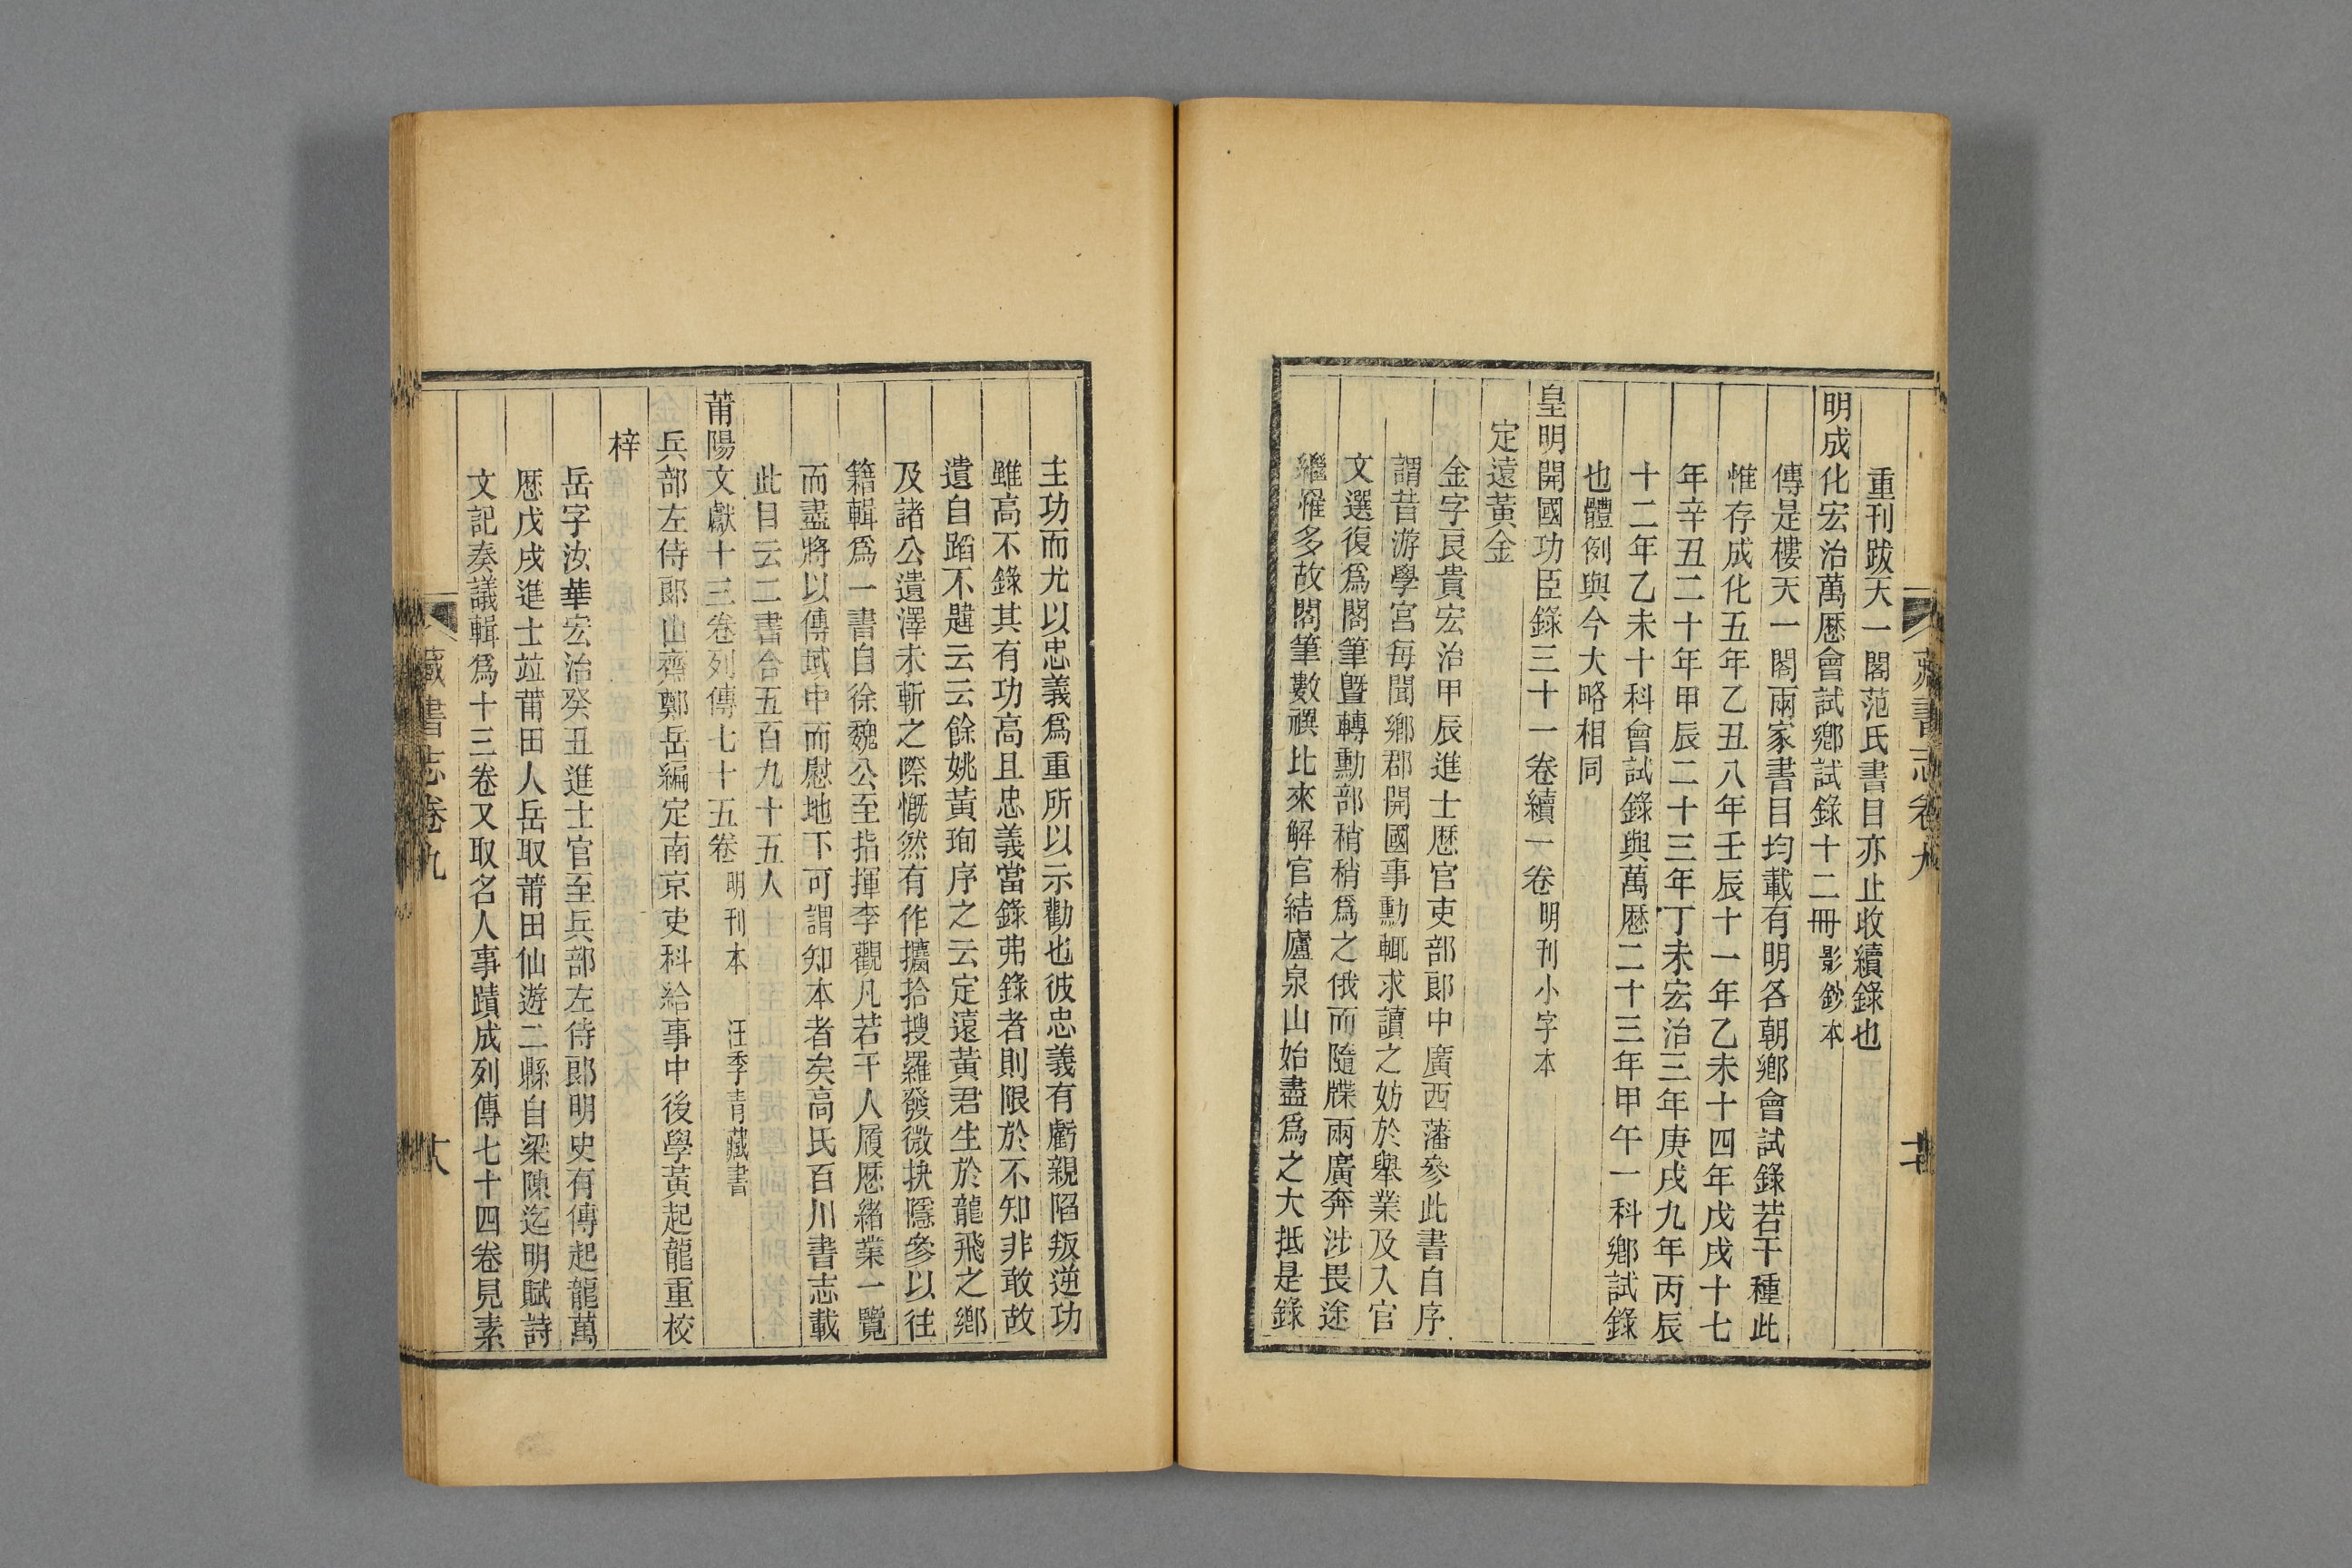 重刊跋天一閣范氏書目亦止收續錄也
明成化宏治萬厯會試鄉試錄十二冊影鈔本
傳是樓天一閣兩家書目均載有明各朝鄉會試錄若干種此
惟存成化五年乙丑八年壬辰十一年乙未十四年戊戌十七
年辛丑二十年甲辰二十三年丁未宏治三年庚戌九年丙辰
十二年乙未十科會試錄與萬厯二十三年甲午一科鄉試錄
也體例與今大略相同
皇明開國功臣錄三十一卷續一卷明刊小字本
定遠黃金
金字良貴宏治甲辰進士歷官吏部郞中廣西藩參此書自序
謂昔游學宮每聞鄉郡開國事勳輒求讀之妨於舉業及入官
文選復爲閣筆曁轉勳部稍稍爲之俄而隨牒兩廣奔涉畏途
繼罹多故閣筆數禩比來解官結廬泉山始盡爲之大抵是錄
主功而尤以忠義爲重所以示勸也彼忠義有虧親陷叛逆功
雖高不錄其有功高且忠義當錄弗錄者則限於不知非敢故
遺自蹈不韙云云餘姚黃珣序之云定遠黃君生於龍飛之鄉
及諸公遺澤未斬之際慨然有作攟拾搜羅發微抉隱參以往
籍輯爲一書自徐魏公至指揮李觀凡若干人履厯緒業一覽
而盡將以傳域中而慰地下可謂知本者矣高氏百川書志載
此目云二書合五百九十五人
莆陽文獻十三卷列傳七十五卷明刊本　汪季青藏書
兵部左侍郎山齋鄭岳編定南京吏科給事中後學黃起龍重校
梓
岳字汝華宏治癸丑進士官至兵部左侍郞明史有傳起龍萬
厯戊戌進士竝莆田人岳取莆田仙遊二縣自梁陳迄明賦詩
文記奏議輯爲十三卷又取名人事蹟成列傳七十四卷見素
藏書志卷九